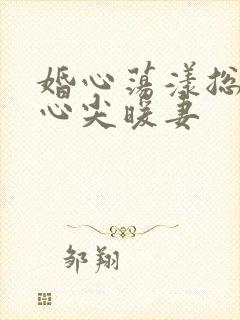 婚心荡漾总
心尖暖妻
邹翔